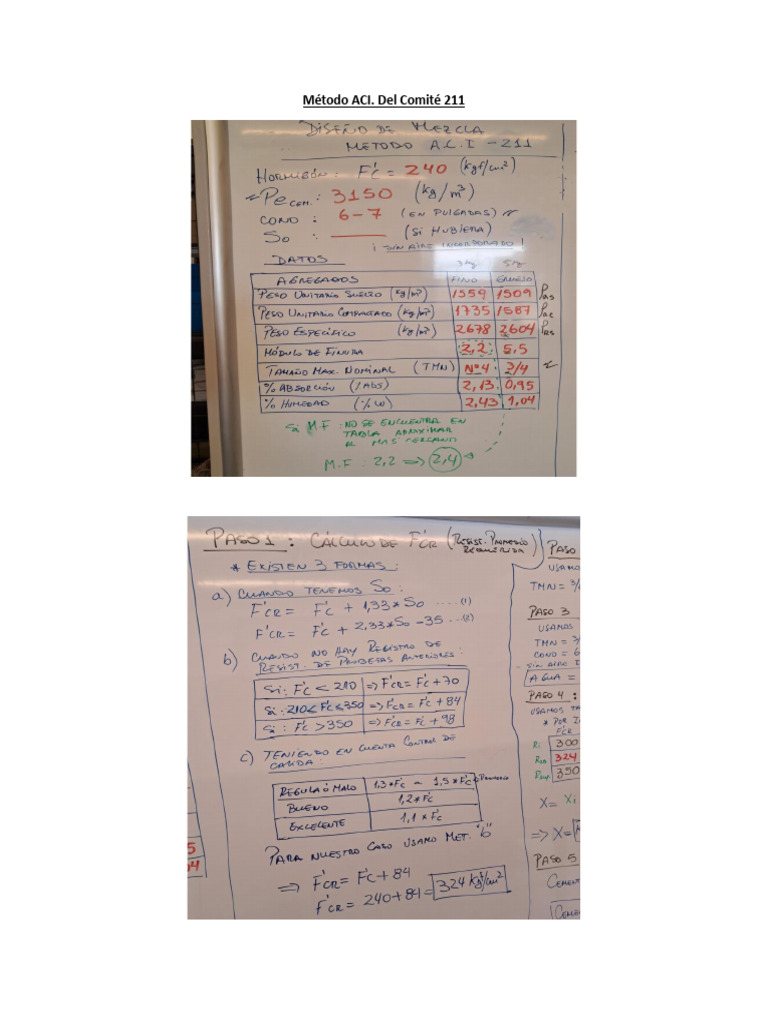 Método ACI. Del Comité 211
DISEÑO DE MEZCLA
METODO A.C.I - 211
HORMIGÓN: F'c = 240 (kgf/cm²)
Pe CEM.: 3150 (kg/m³)
CONO : 6-7 (EN PULGADAS)
So : (SI HUBIERA)
¡ SIN AIRE INCORPORADO!
DATOS
AGREGADOS FINO GRUESO
PESO UNITARIO SUELTO (kg/m³) 1559 1509 Pas
PESO UNITARIO COMPACTADO (kg/m³) 1735 1587 Pac
PESO ESPECÍFICO (kg/m³) 2678 2604
MÓDULO DE FINURA 2,2 5,5
TAMAÑO MAX. NOMINAL (TMN) Nº4 3/4
% ABSORCIÓN (% ABS) 2,13 0,95
% HUMEDAD (% W) 2,43 1,04
Si M.F : NO SE ENCUENTRA EN
TABLA APROXIMAR
AL MAS CERCANO
M.F : 2,2 => 2,4
PASO 1 : CÁLCULO DE F'CR (RESIST. PROMEDIO
REQUERIDA)
* EXISTEN 3 FORMAS:
a) CUANDO TENEMOS So :
F'CR = F'c + 1,33*So .... (1)
F'CR = F'c + 2,33*So - 35 ... (2)
b) CUANDO NO HAY REGISTRO DE
RESIST. DE PROBETAS ANTERIORES:
Si: F'c < 210 => F'CR = F'c + 70
Si: 210 ≤ F'c ≤ 350 => F'CR = F'c + 84
Si: F'c > 350 => F'CR = F'c + 98
c) TENIENDO EN CUENTA CONTROL DE
CALIDA:
REGULAR Ó MALO 1,3*F'c - 1,5*F'c PROMEDIO
BUENO 1,2*F'c
EXCELENTE 1,1*F'c
PARA NUESTRO CASO USAMO MET. "b"
=> F'CR = F'c + 84
F'CR = 240 + 84 = 324 Kgf/cm²
PASO
USAMO
TMN = 3/
PASO 3
USAMOS
TMN = 3/
CONO = 6
- SIN AIRE I
AGUA =
PASO 4 :
USAMOS TA
* POR I
F'CR
300
324
350
X = Xi
=> X =
PASO 5
CEMENT
CEME
5
04